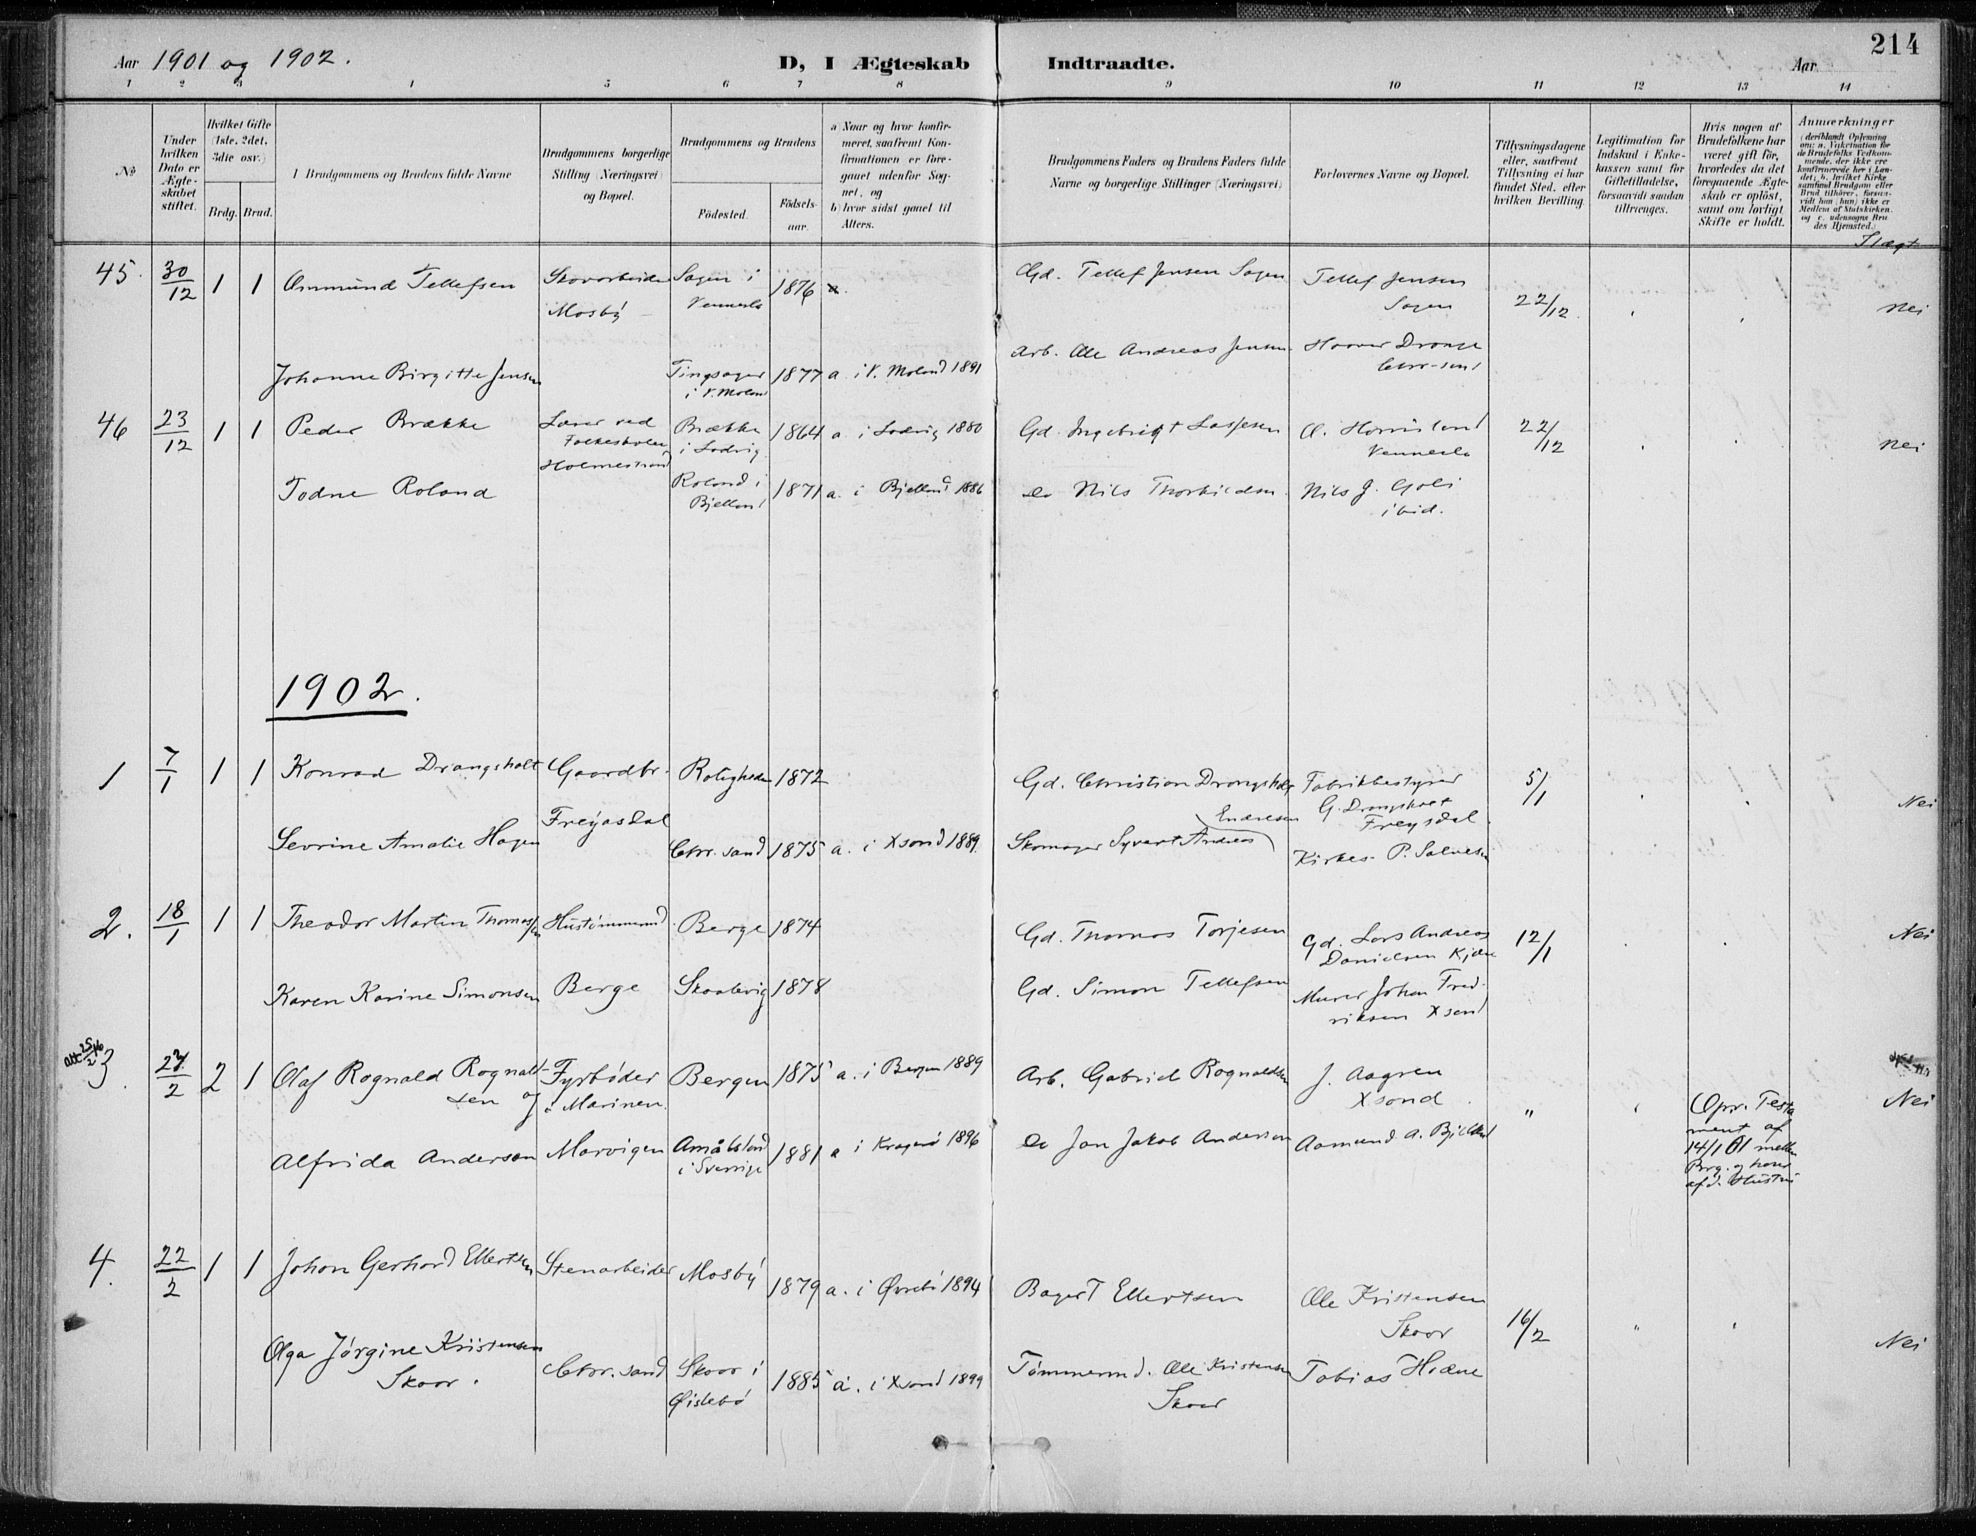 214
Aar 1901 og 1902. D, I Ægteskab Indtraadte. Aar
1 2 3 4 5 6 7 8 9 10 11 12 13 14
No
Under hvilken Dato er Ægteskabet stiftet.
Hvilket Gifte (1ste, 2det, 3die osv.)
Brdg. Brud.
1 Brudgommens og Brudens fulde Navne
Brudgommens borgerlige Stilling (Næringsvei) og Bopæl.
Brudgommens og Brudens
Fødested. Fødselsaar.
a Naar og hvor konfirmeret, saafremt Konfirmationen er foregaaet udenfor Sognet, og
b) hvor sidst gaaet til Alters.
Brudgommens Faders og Brudens Faders fulde Navne og borgerlige Stillinger (Næringsvei)
Forlovernes Navne og Bopæl.
Tillysningsdagene eller, saafremt Tillysning ei har fundet Sted, efter hvilken Bevilling.
Legitimation for Indskud i Enkekassen samt for Giftetilladelse, forsaavidt saadan tiltrænges.
Hvis nogen af Brudefolkene har været gift før, hvorledes da det foregaaende Ægteskab er opløst, samt om lovligt Skifte er holdt.
Anmærkninger
Slægt
45. 30/12 1 1 Ommund Tellefsen Skovarbeider Mosby Sagen i Vennesla 1876 Gd. Tellef Jensen Sagen Tellef Jensen Sagen 22/12 Nei
Johanne Birgitte Jensen Tingsager i V. Moland 1877 a. i V. Moland 1891 Arb. Ole Andreas Jensen
46 23/12 1 1 Peder Brække Lærer ved Folkeskolen Holmestrand Brække i 1864 a. i 1880 Gd. 22/12 Nei
Todne Roland Roland i Bjelland 1871 a. i Bjelland 1886 do Nils Thorkildsen Nils J. ibid.
1902.
1 7/1 1 1 Konrad Drangsholt Gaardbr. Roligheden 1872 Gd. Christian Drangsholt Fabrikbestyrer G. Drangsholt Freysdal. 5/1 Nei
Sevrine Amalie Hagen Freyasdal Chr. sand 1875 a. i Xsand 1889. Skomager Syvert Andreas Endresen Kirkes. P. Salvesen
2. 18/1 1 1 Theodor Martin Thomassen Hustømmermd. Berge 1874 Gd. Thomas Torjesen Gd. Lars Andreas Danielsen 12/1 Nei
Karen Karine Simonsen Berge Skaalevig 1878 Gd. Simon Tellefsen Murer Johan Fredriksen Xsand
3. 2/2 2 1 Olaf Rognald Rognaldsen og Fyrbøder i Marinen. Bergen 1875 a. i Bergen 1889 Arb. Gabriel Rognaldsen J. Aagren Xsand. " Opr. Testament af 14/1 01 mellem Brg. og hans afd. Hustru Nei
Alfrida Anderson Marvigen i Sverrige 1881 a i Kragerø 1896 do Jan Jakob Anderson Aamund A.
4. 22/2 1 1 Johan Gerhard Ellertsen Stenarbeider Mosby 1879 a. i Øvrebø 1894 Bager T Ellertsen Ole Kristensen Skaar 16/2 " Nei
Olga Jørgine Kristensen Skaar. Chr. sand Skaar i Øislebø 1885 a. i Xsand 1899 Tømmermd. Ole Kristensen Skaar Tobias